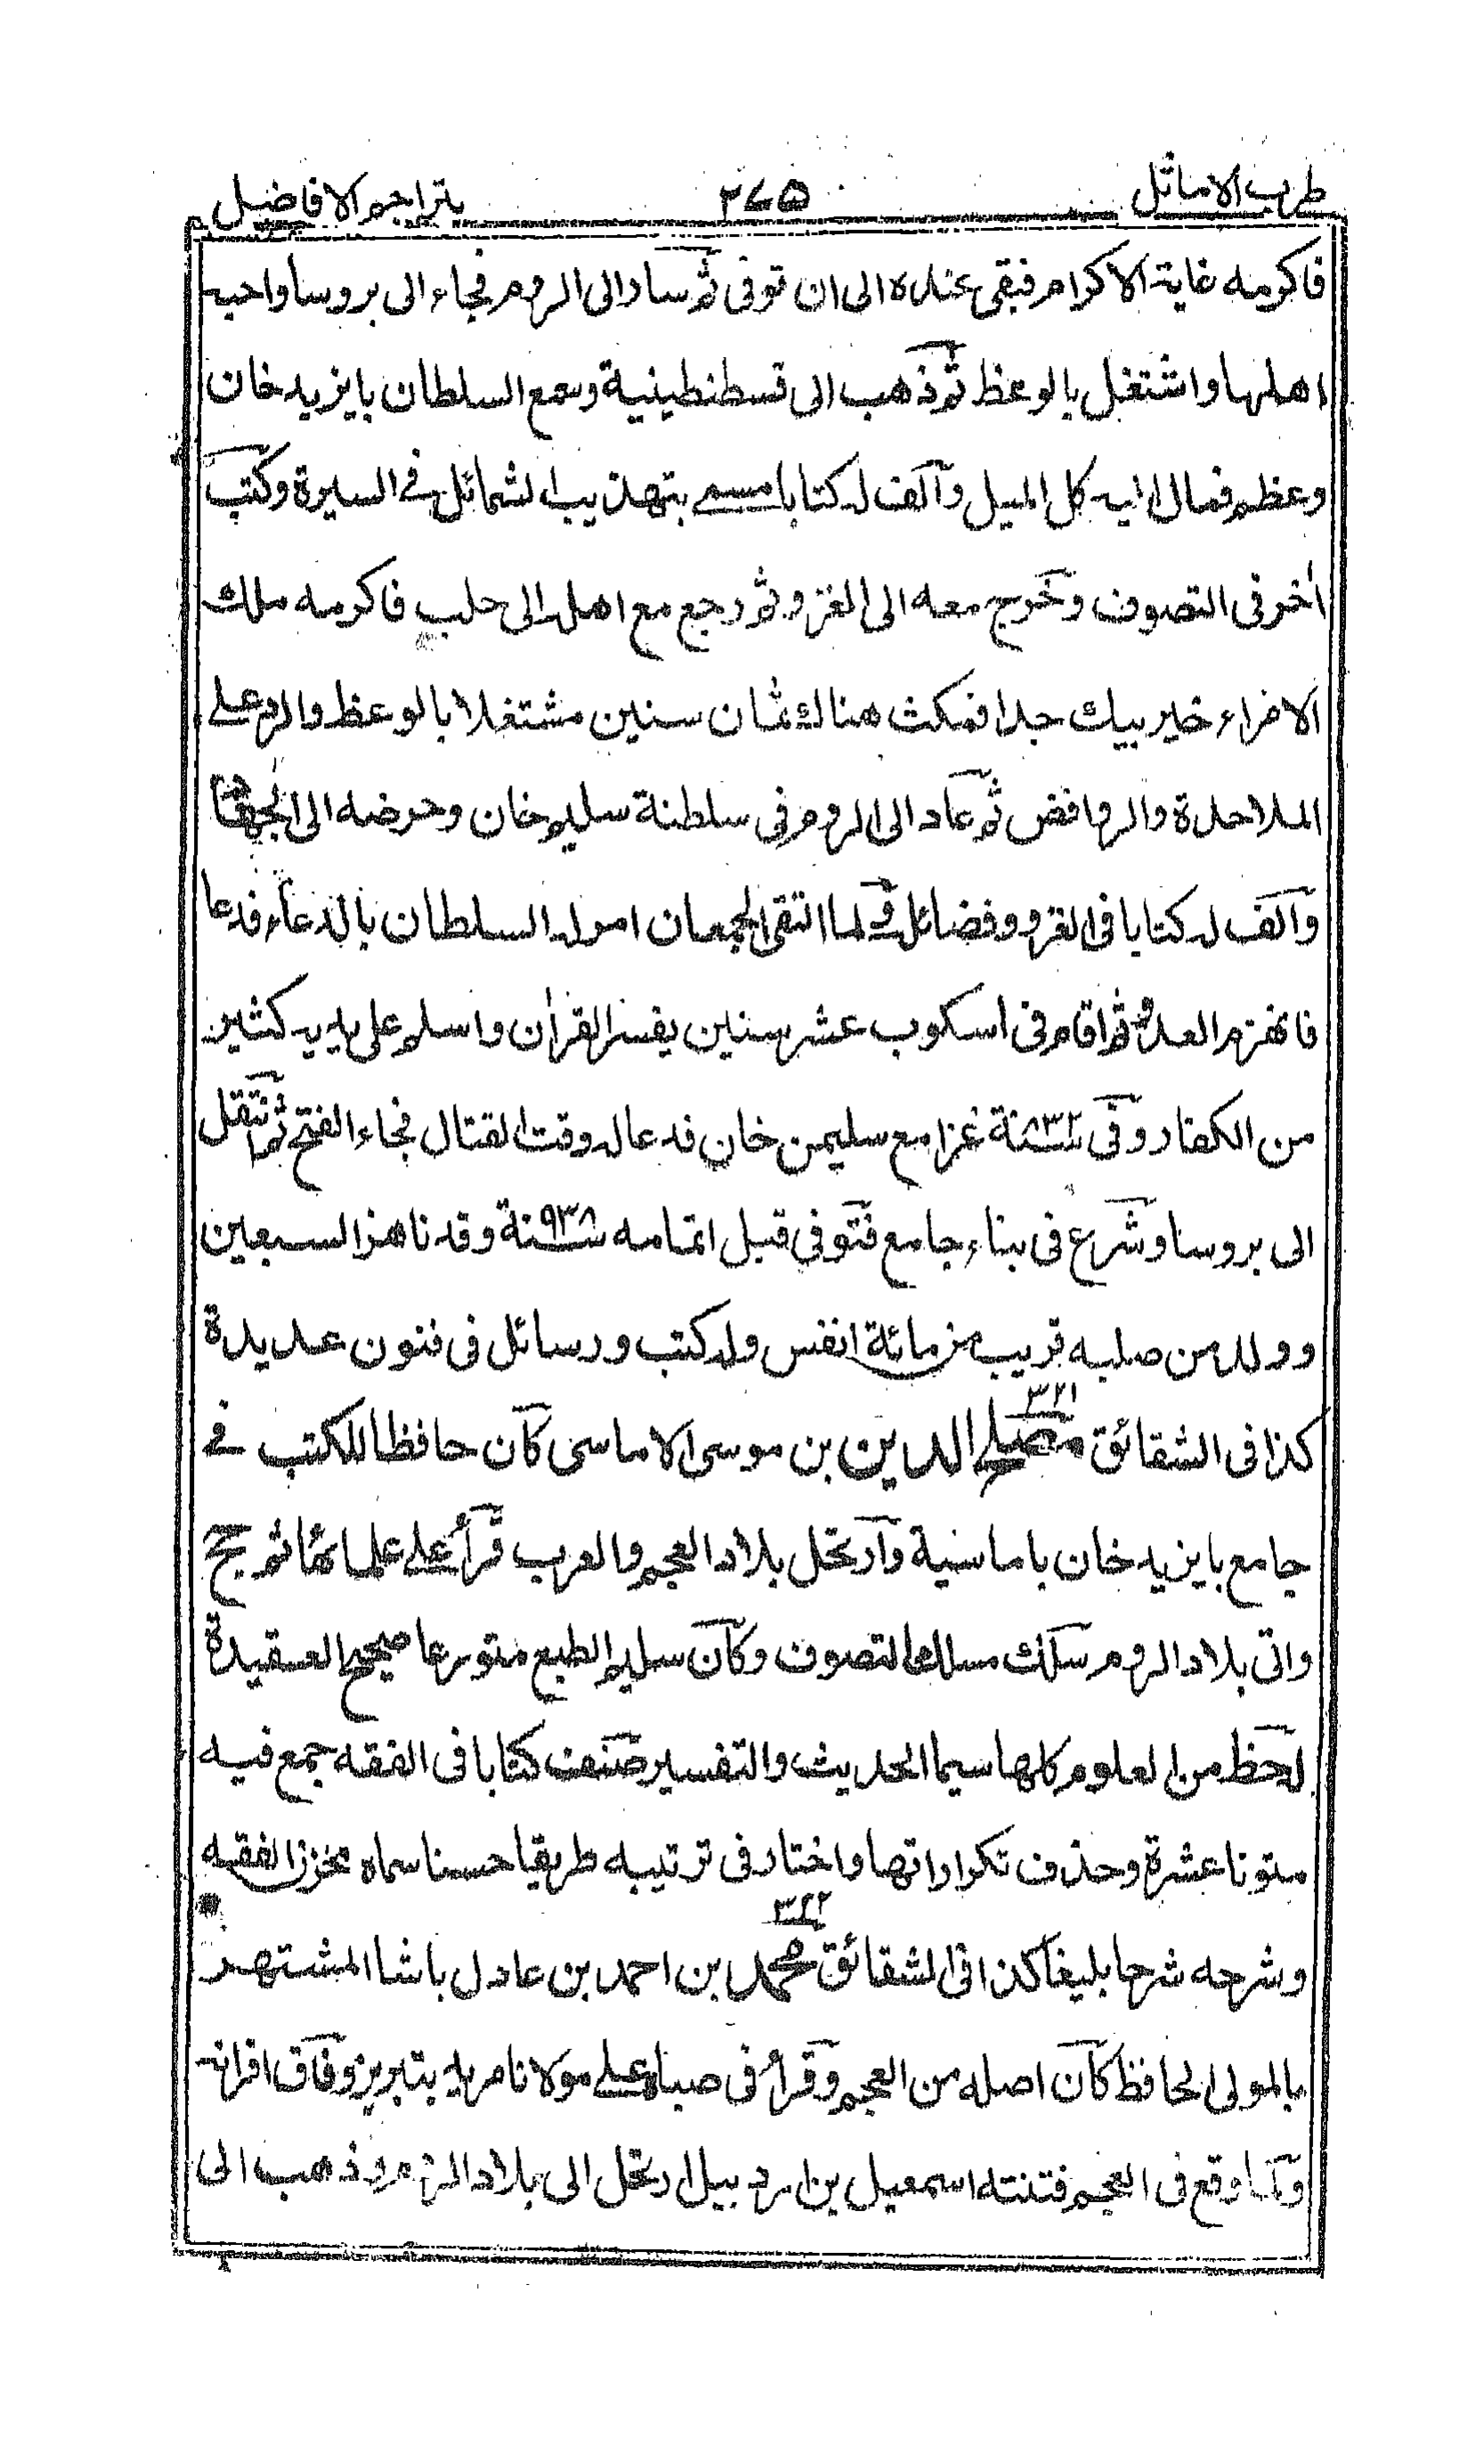 طرب الاماثل ٢٧٥ بتراجم الافاضل
فاكرمه غاية الاكرام فبقى عنده الى ان توفى ثم سار الى الروم فجاء الى بروسا واحبه
اهلها واشتغل بالوعظ ثم ذهب الى قسطنطينية وسمع السلطان بايزيد خان
وعظه فمال اليه كل الميل وآلف له كتابا مسمى بتهذيب الشمائل فى السيرة وكتب
اٰخر فى التصوف وخرج معه الى الغزو ثم رجع مع اهله الى حلب فاكرمه ملك
الامراء خير بيك جدا فمكث هناك ثمان سنين مشتغلا بالوعظ والرد على
الملاحدة والروافض ثم عاد الى الروم فى سلطنة سليم خان وحرضه الى الجهاد
وآلف له كتابا فى الغزو وفضائله ولما التقى الجمعان امره السلطان بالدعاء فدعا
فانهزم العدو ثم اقام فى اسكوب عشر سنين يفسر القراٰن واسلم على يديه كثير
من الكفار وفى سنة ٩٣٢ غزا مع سليمن خان فدعا له وقت القتال فجاء الفتح ثم انتقل
الى بروسا وشرع فى بناء جامع فتوفى قبل اتمامه سنة ٩٣٨ وقد ناهز السبعين
وولد من صلبه قريب من مائة انفس وله كتب ورسائل فى فنون عديدة
كذا فى الشقائق ٣٢١ مصلح الدين بن موسى الاماسى كان حافظا للكتب فى
جامع بايزيد خان باماسية وارتحل بلاد العجم والعرب قرأ على علمائها ثم حج
واتى بلاد الروم سلك مسلك التصوف وكان سليم الطبع متورعا صحيح العقيدة
له حظ من العلوم كلها سيما الحديث والتفسير صنف كتابا فى الفقه جمع فيه
متونا عشرة وحذف تكراراتها واختار فى ترتيبه طريقا حسنا سماه مخزن الفقه
وشرحه شرحا بليغا كذا فى الشقائق ٣٢٢ محمد بن احمد بن عادل باشا المشتهر
بالمولى الحافظ كان اصله من العجم وقرأ فى صباه على مولانا مريد بتبريز وفاق اقرانه
ولما وقع فى العجم فتنته اسمعيل بن اردبيل ارتحل الى بلاد الروم وذهب الى